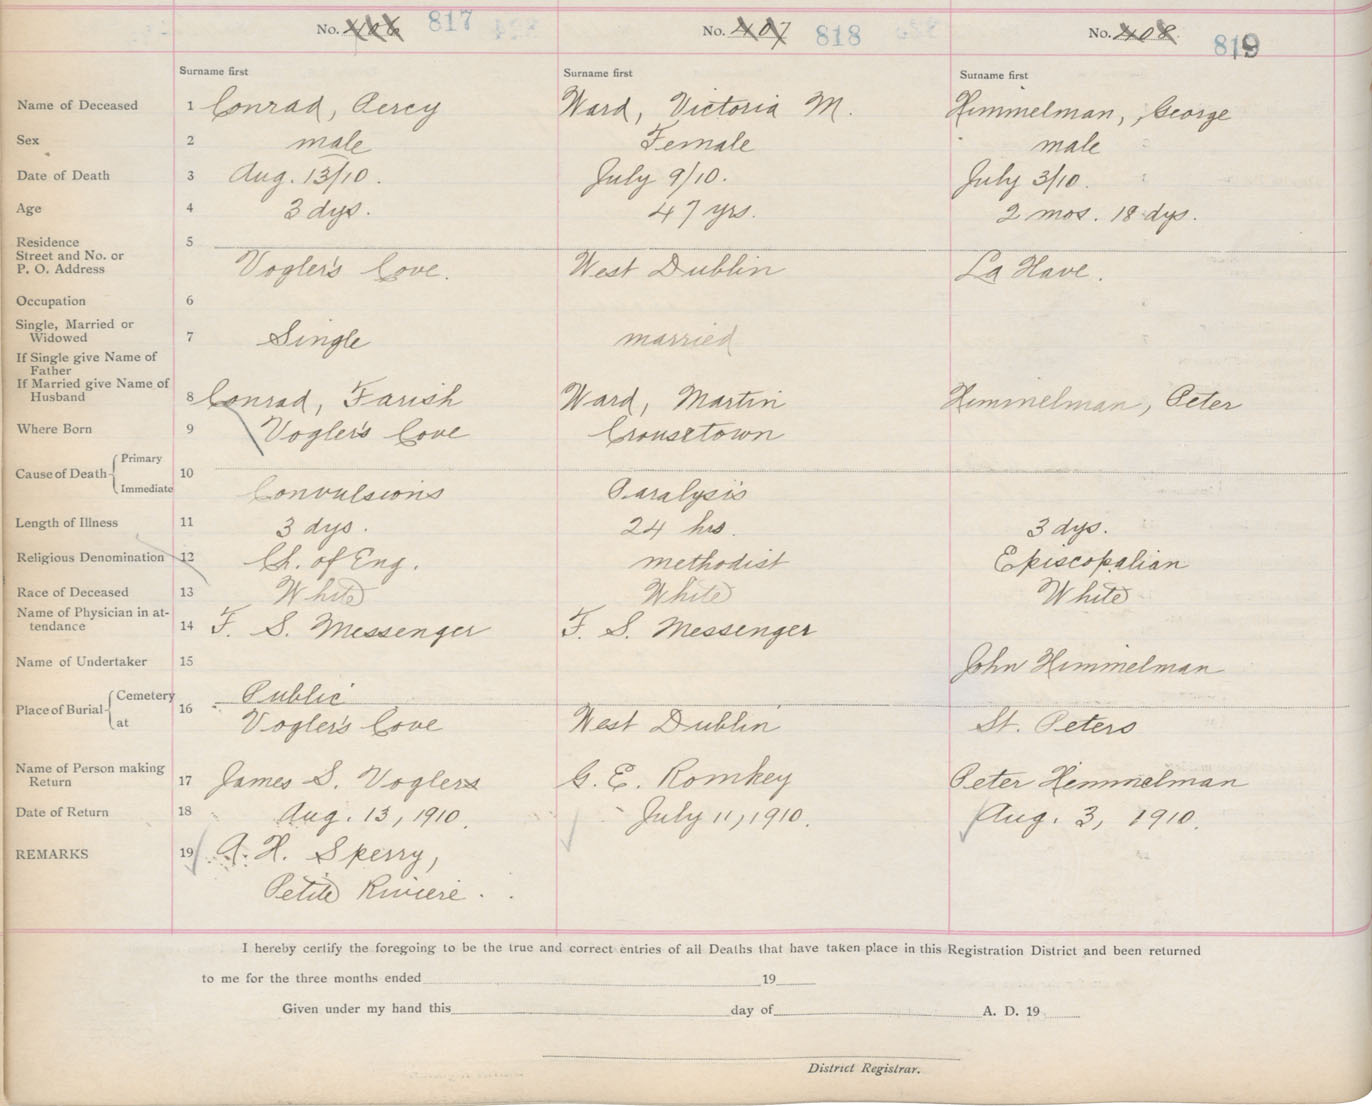 No. 406 817 No. 407 818 No. 408 819
Surname first Surname first Surname first
Name of Deceased 1 Conrad, Percy Ward, Victoria M. Himmelman, George
Sex 2 male Female male
Date of Death 3 Aug. 13/10. July 9/10. July 3/10.
Age 4 3 dys. 47 yrs. 2 mos. 18 dys.
Residence 5
Street and No. or
P. O. Address Vogler's Cove. West Dublin La Have.
Occupation 6
Single, Married or
Widowed 7 Single married
If Single give Name of
Father
If Married give Name of
Husband 8 Conrad, Farish Ward, Martin Himmelman, Peter
Where Born 9 Vogler's Cove Crousetown
Cause of Death Primary 10
Immediate Convulsions Paralysis
Length of Illness 11 3 dys. 24 hrs. 3 dys.
Religious Denomination 12 Ch. of Eng. methodist Episcopalian
Race of Deceased 13 White White White
Name of Physician in at-
tendance 14 F. S. Messenger F. S. Messenger
Name of Undertaker 15 John Himmelman
Place of Burial Cemetery 16 Public
at Vogler's Cove West Dublin St. Peters
Name of Person making
Return 17 James S. Voglers G. E. Romkey Peter Himmelman
Date of Return 18 Aug. 13, 1910. July 11, 1910. Aug. 3, 1910.
REMARKS 19 A. H. Sperry,
Petite Riviere.
I hereby certify the foregoing to be the true and correct entries of all Deaths that have taken place in this Registration District and been returned
to me for the three months ended 19
Given under my hand this day of A. D. 19
District Registrar.